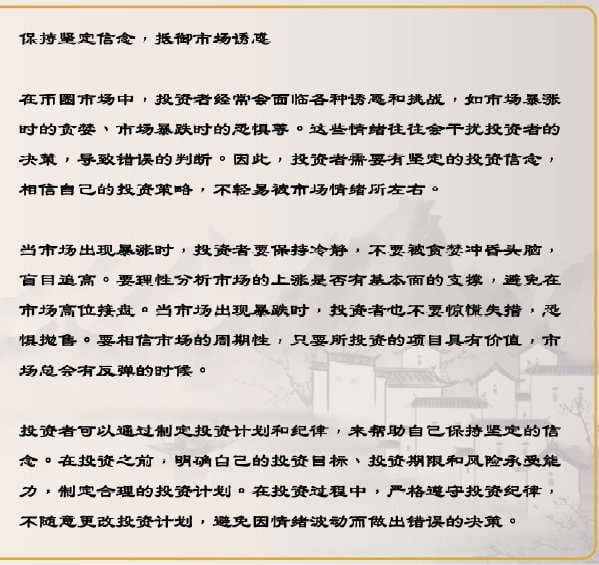 保持坚定信念，抵御市场诱惑
在币圈市场中，投资者经常会面临各种诱惑和挑战，如市场暴涨
时的贪婪、市场暴跌时的恐惧等。这些情绪往往会干扰投资者的
决策，导致错误的判断。因此，投资者需要有坚定的投资信念，
相信自己的投资策略，不轻易被市场情绪所左右。
当市场出现暴涨时，投资者要保持冷静，不要被贪婪冲昏头脑，
盲目追高。要理性分析市场的上涨是否有基本面的支撑，避免在
市场高位接盘。当市场出现暴跌时，投资者也不要惊慌失措，恐
惧抛售。要相信市场的周期性，只要所投资的项目具有价值，市
场总会有反弹的时候。
投资者可以通过制定投资计划和纪律，来帮助自己保持坚定的信
念。在投资之前，明确自己的投资目标、投资期限和风险承受能
力，制定合理的投资计划。在投资过程中，严格遵守投资纪律，
不随意更改投资计划，避免因情绪波动而做出错误的决策。